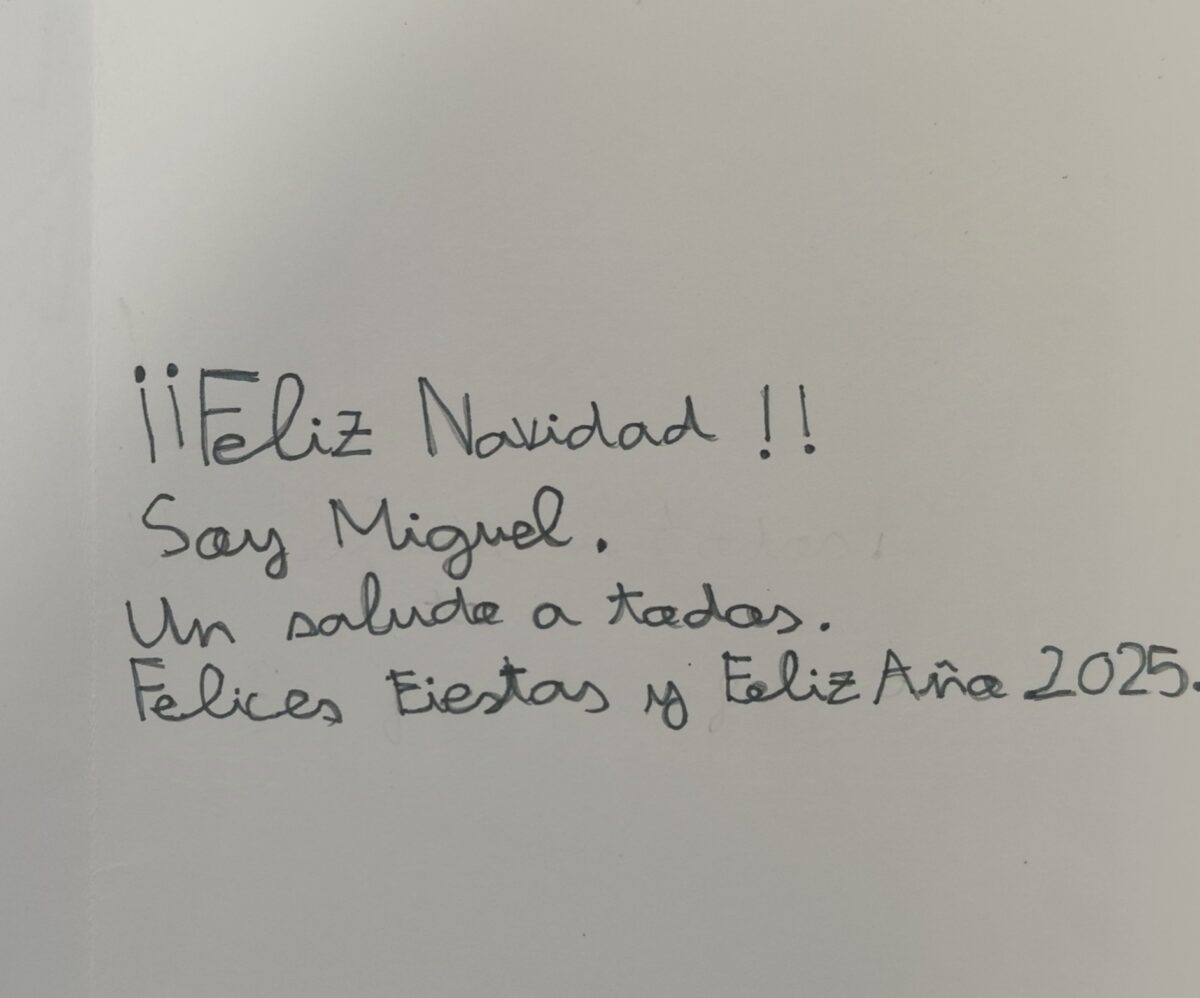 ¡¡Feliz Navidad!!
Soy Miguel.
Un saludo a todos.
Felices Fiestas y Feliz Año 2025.